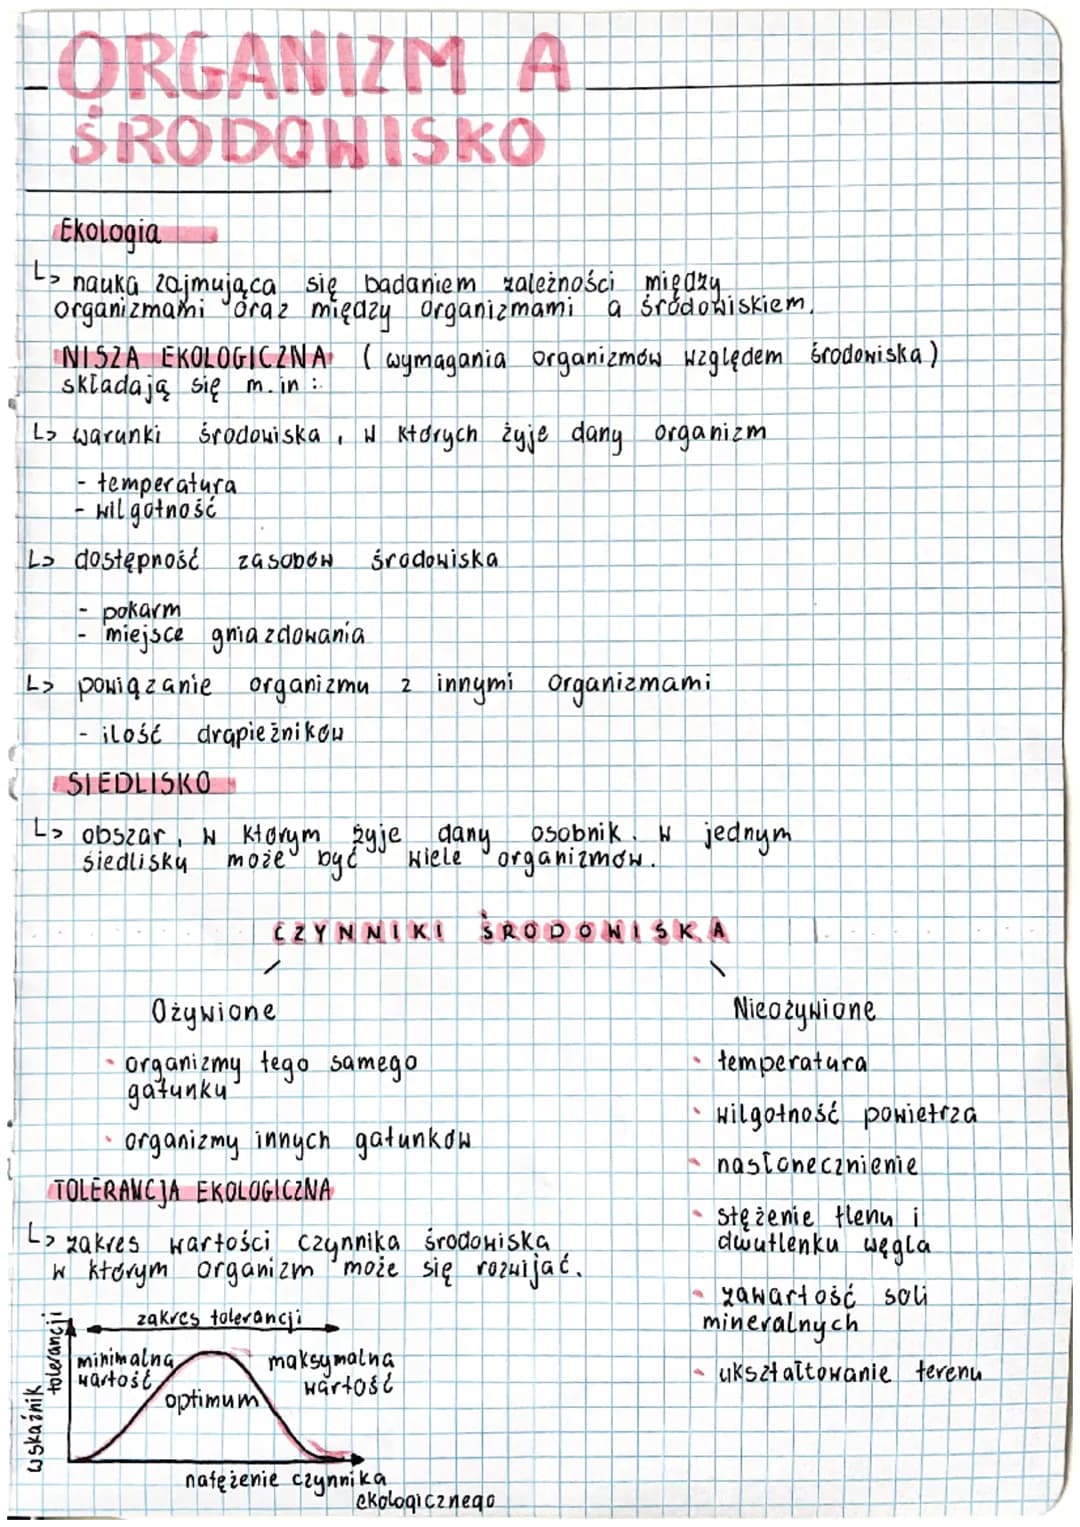 ORGANIZM A
ŚRODOWISKO
Ekologia
↳ nauka zajmująca się badaniem zależności między
organizmami oraz między organizmami a środowiskiem.
NISZA EKOLOGICZNA (wymagania organizmów względem środowiska)
składają się m.in:
↳ warunki środowiska, w których żyje dany organizm
- temperatura
- wilgotność
↳ dostępność zasobów środowiska
- pokarm
- miejsce gniazdowania
↳ powiązanie organizmu z innymi organizmami
- ilość drapieżników
SIEDLISKO
↳ obszar, w którym żyje dany osobnik. W jednym
siedlisku może być wiele organizmów.
CZYNNIKI ŚRODOWISKA
Ożywione
• organizmy tego samego
gatunku
• organizmy innych gatunków
Nieożywione
• temperatura
• wilgotność powietrza
• nasłonecznienie
• stężenie tlenu i
dwutlenku węgla
• zawartość soli
mineralnych
• ukształtowanie terenu
TOLERANCJA EKOLOGICZNA
↳ zakres wartości czynnika środowiska
w którym organizm może się rozwijać.
zakres tolerancji
wskaźnik
tolerancji
minimalna
wartość
optimum
maksymalna
wartość
natężenie czynnika
ekologicznego